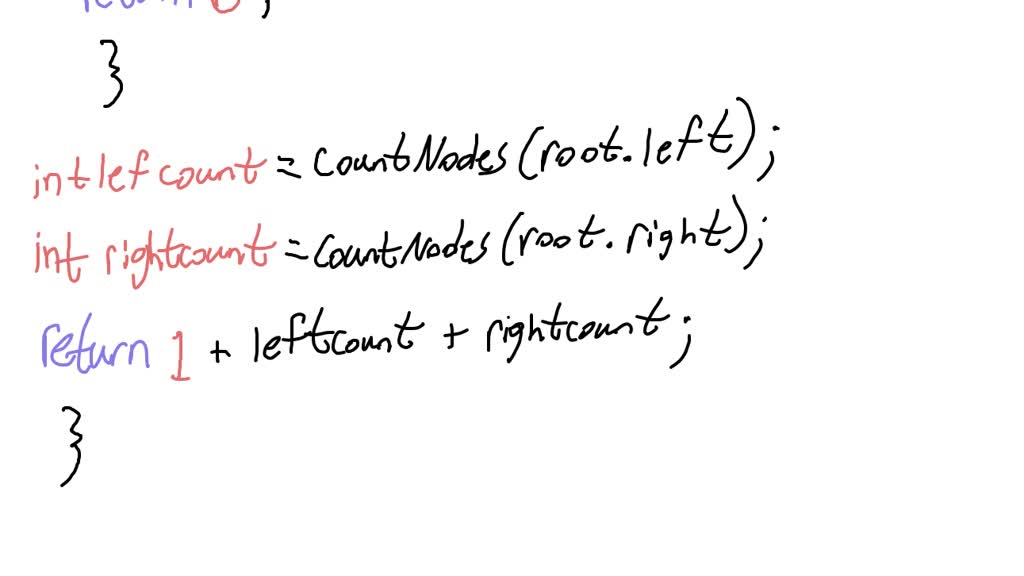 return 0;
}
int lefcount = CountNodes(root.left);
int rightcount = CountNodes(root.right);
return 1 + leftcount + rightcount;
}